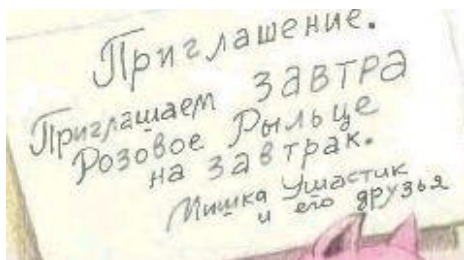 Приглашение.
Приглашаем завтра
Розовое Рыльце
на завтрак.
Мишка Ушастик
и его друзья